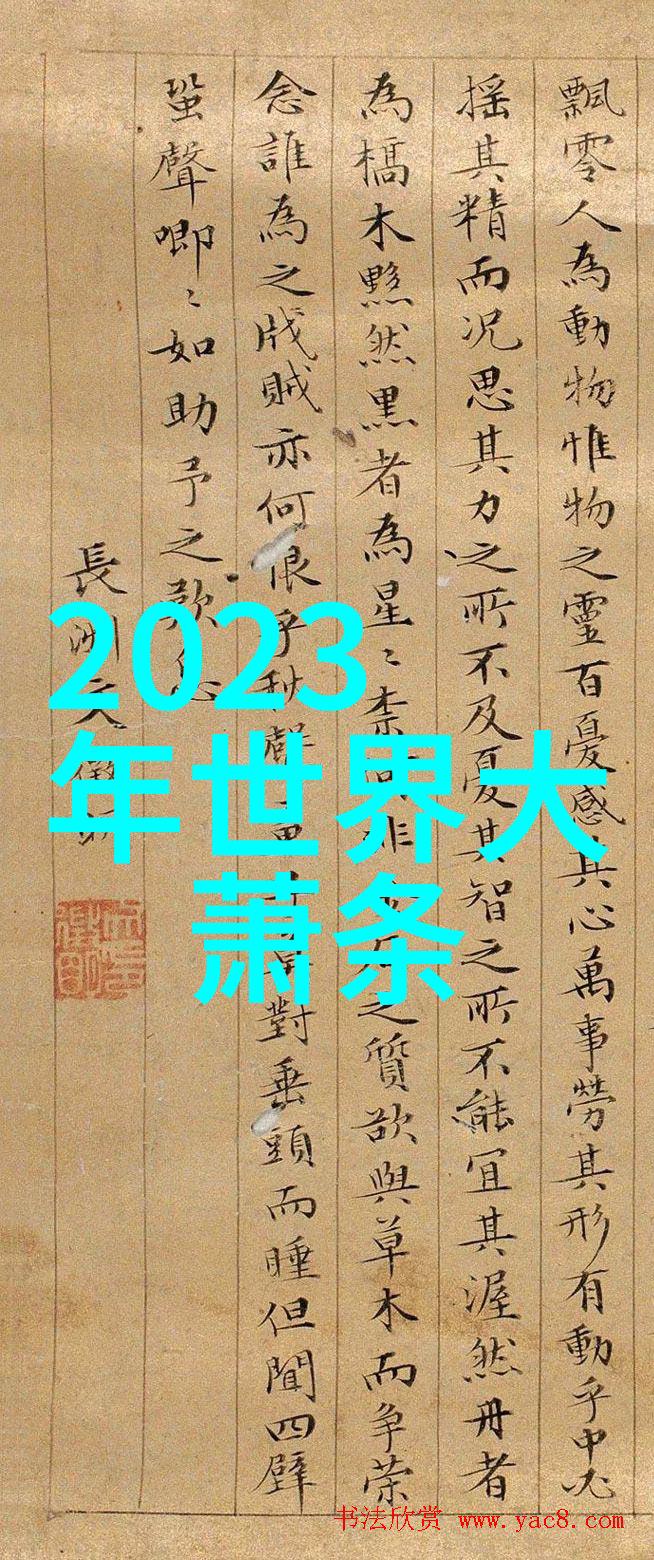 飄零人為動物惟物之靈百憂感其心萬事勞其形有動乎中必
搖其精而況思其力之所不及憂其智之所不能宜其渥然丹者
為槁木黟然黑者為星〻之質欲與草木而争榮
念誰為之戕賊亦何恨乎秋聲對垂頭而睡但聞四壁
蛩聲唧〻如助予之歎息
長洲文徵明
2023
年世界大
萧条
书法欣赏 www.yac8.com